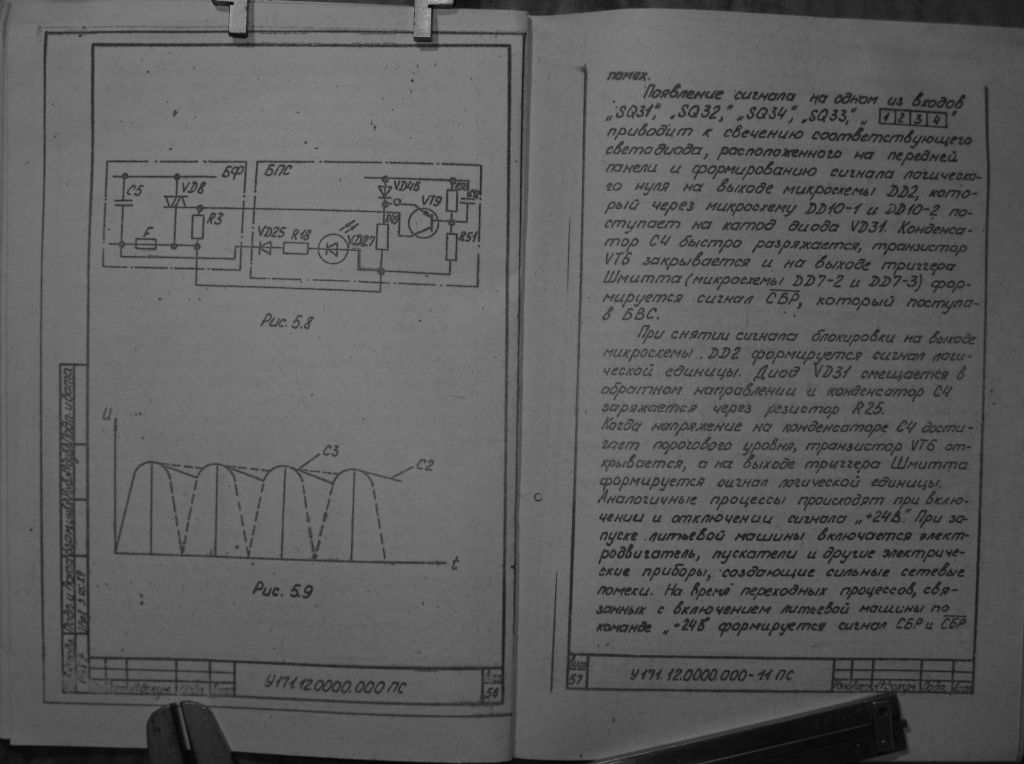 БФ
БПС
C5
VD8
R3
F
VD25
R18
VD27
VD46
VT9
R51
Рис. 5.8
U
C3
C2
t
Рис. 5.9
У171.12.0000.000 ПС
56
помех.
Появление сигнала на одном из входов
„SQ31”, „SQ32,” „SQ34”, „SQ33,” „ 1 2 3 4 ”
приводит к свечению соответствующего
светодиода, расположенного на передней
панели и формированию сигнала логическо-
го нуля на выходе микросхемы DD2, кото-
рый через микросхему DD10-1 и DD10-2 по-
ступает на катод диода VD31. Конденса-
тор C4 быстро разряжается, транзистор
VT6 закрывается и на выходе триггера
Шмитта (микросхемы DD7-2 и DD7-3) фор-
мируется сигнал С̅Б̅Р̅, который поступа-
в БВС.
При снятии сигнала блокировки на выходе
микросхемы DD2 формируется сигнал логи-
ческой единицы. Диод VD31 смещается в
обратном направлении и конденсатор C4
заряжается через резистор R25.
Когда напряжение на конденсаторе C4 дости-
гает порогового уровня, транзистор VT6 от-
крывается, а на выходе триггера Шмитта
формируется сигнал логической единицы.
Аналогичные процессы происходят при вклю-
чении и отключении сигнала „+24В.” При за-
пуске литьевой машины включается элект-
родвигатель, пускатели и другие электриче-
ские приборы, создающие сильные сетевые
помехи. На время переходных процессов, свя-
занных с включением литьевой машины по
команде „+24В” формируется сигнал СБР и С̅Б̅Р̅
57
У171.12.0000.000-11 ПС